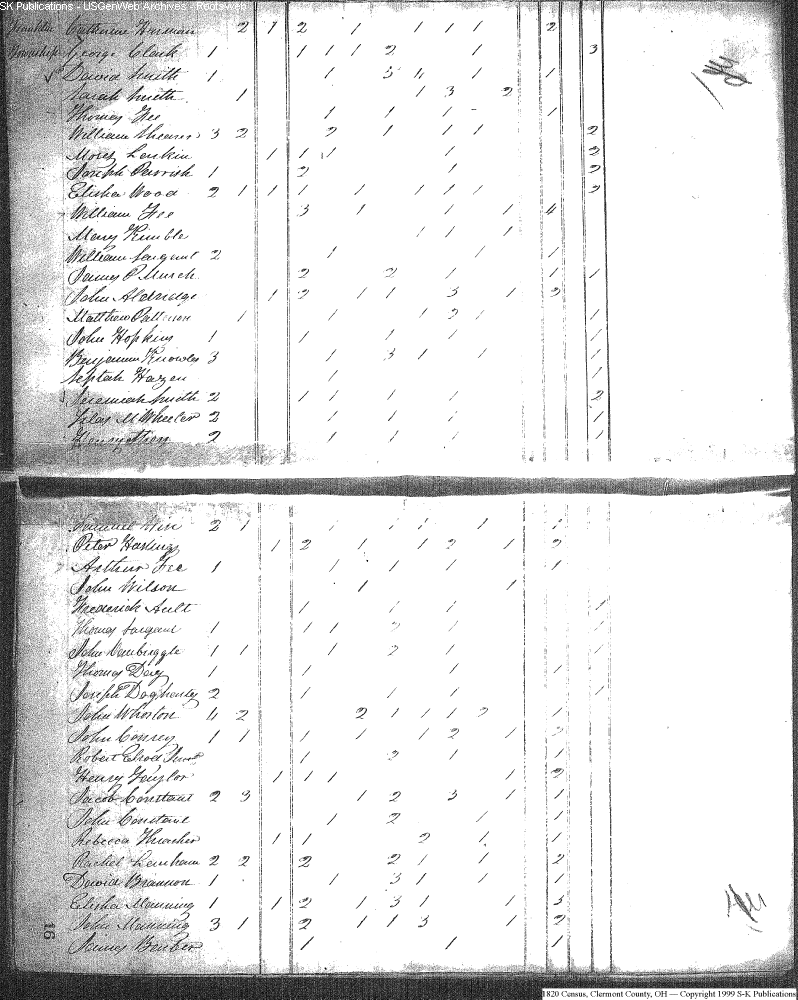 SK Publications - USGenWeb Archives - Rootsweb
Franklin Catherine 2 1 2 1 1 1 1 2
Township George Clark 1 1 1 1 2 1 3
David Smith 1 1 3 4 1 1
Sarah Smith 1 1 3 2
Thomas Fee 1 1 1 - 1
William Shearer 3 2 2 1 1 1 2
Moses Larkin 1 1 1 1 2
Joseph Parrish 1 2 1 2
Elisha Wood 2 1 1 1 1 1 1 1 1 2
William Fee 3 1 1 1 4
Mary Kimble 1 1 1 1
William Sargent 2 1 1 1
James P Murch 2 2 1 1 1
John Aldridge 1 2 1 1 3 1 2
Matthew Patterson 1 1 1 2 1 1
John Hopkins 1 1 1 1 1
Benjamin Knowles 3 1 3 1 1 1
Hazen 1 1
Jeremiah Smith 2 1 1 1 1 2
Silas M Wheeler 2 1 1 1 1
2 1 1 1 1
Samuel 2 1 1 1 1 1 1
Peter 1 2 1 1 2 1 2
Arthur Fee 1 1 1 1 1
John Wilson 1 1
Frederick Ault 1 1 1 1
Thomas Sargent 1 1 1 2 1 1
John 1 1 1 2 1 1
Thomas Day 1 1 1 1
Joseph Dogherty 2 1 1 1 1 1
John Whorton 4 2 2 1 1 1 2 1
John Conrey 1 1 1 1 1 2 1 2
Robert 1 2 1 1
Henry Taylor 1 1 1 1 2
Jacob Constant 2 3 1 2 3 1 1
John Constant 1 2 1 1
Rebecca Thracher 1 1 2 1 1
Rachel 2 2 2 2 1 1 2
David Brannon 1 1 3 1 1 1
Elisha Manning 1 1 2 1 3 1 1 3
John Manning 3 1 2 1 1 3 1 2
James 1 1 1
16
1820 Census, Clermont County, OH — Copyright 1999 S-K Publications